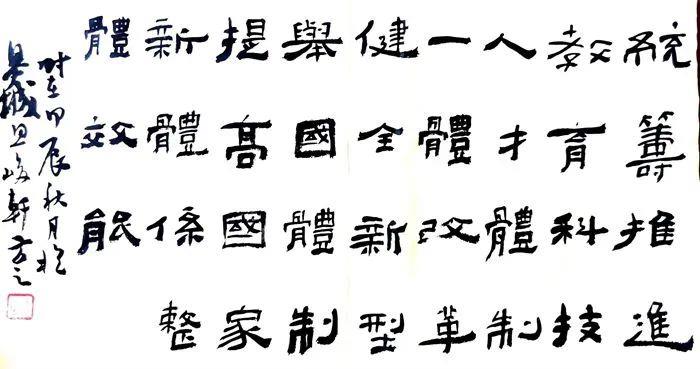 統籌推進
教育科技
人才體制
一體改革
健全新型
舉國體制
提高國家
新體係整
體效能
时在甲辰秋月於
城峻軒